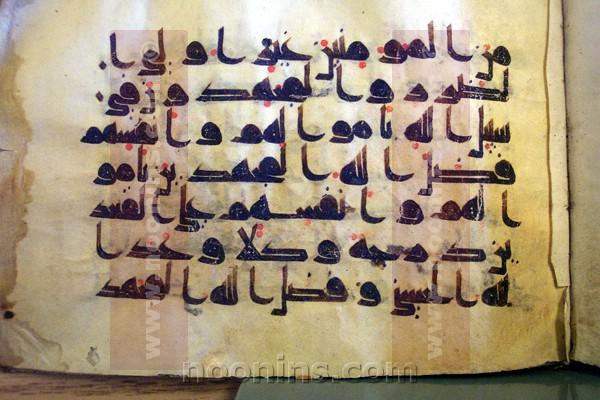 من المومنين غير اولي ا
لضرر والمجهدون في
سبيل الله باموالهم وانفسهم
فضل الله المجهدين بامو
الهم وانفسهم على القعد
ين درجة وكلا وعد ا
لله الحسنى وفضل الله المجهد
noonins.com